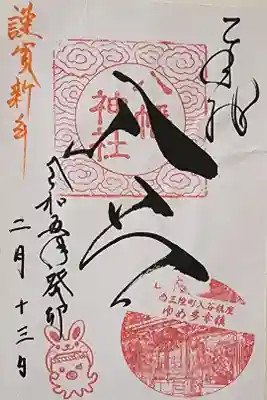 奉拝
八幡神社
八幡
謹賀新年
令和五年癸卯
二月十三日
南三陸町入谷鎮座